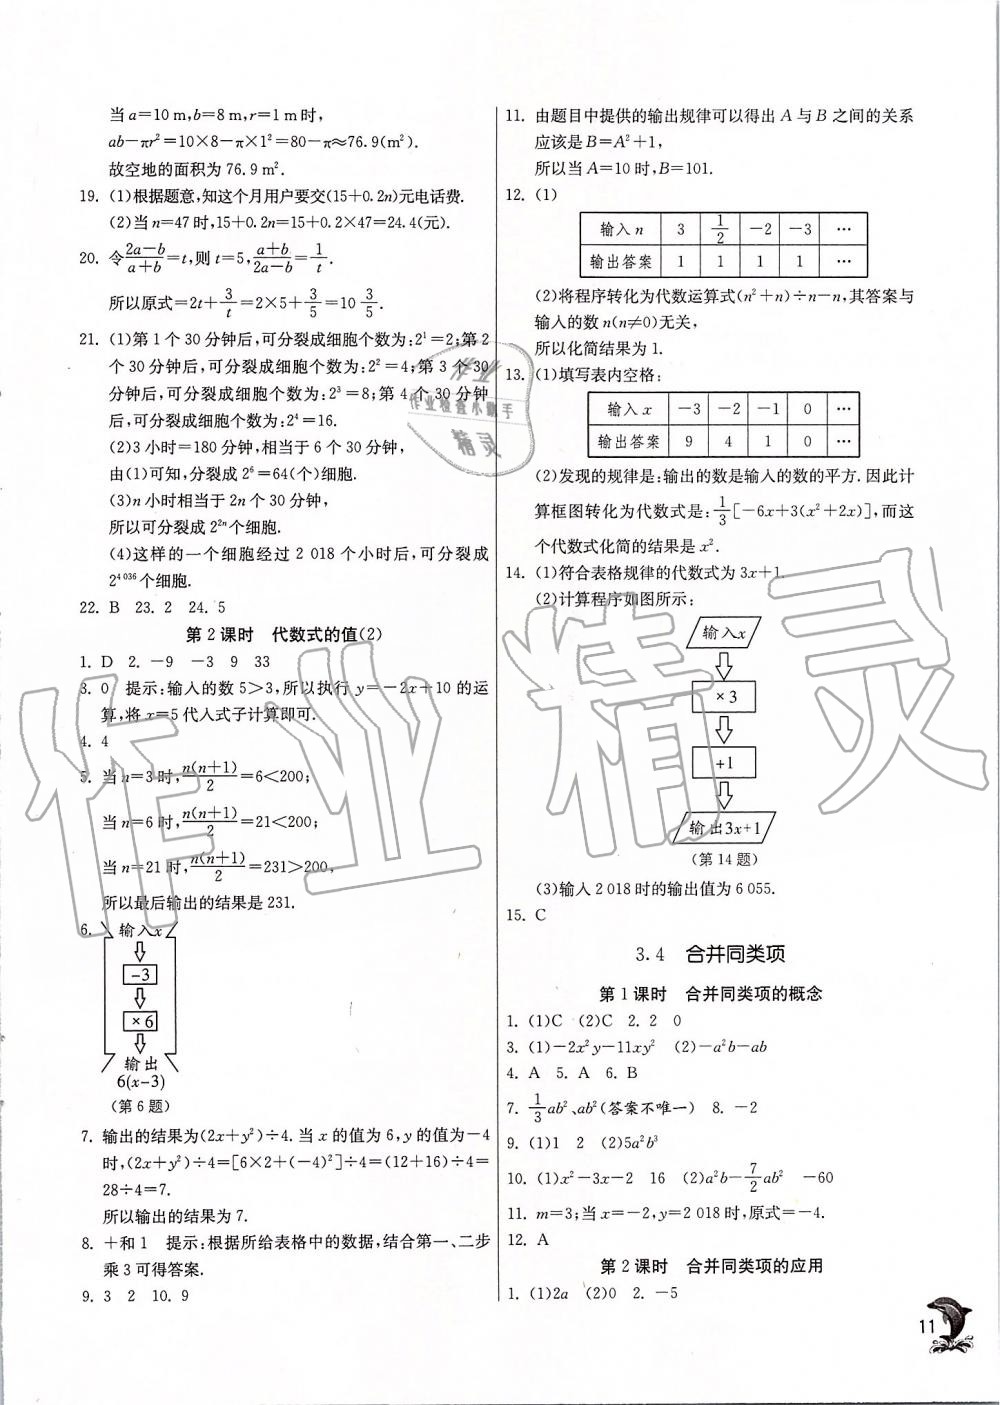 当a=10 m,b=8 m,r=1 m时,
ab-πr²=10×8-π×1²=80-π≈76.9(m²).
故空地的面积为76.9 m².
19. (1)根据题意,知这个月用户要交(15+0.2n)元电话费.
(2)当n=47时,15+0.2n=15+0.2×47=24.4(元).
20. 令(2a-b)/(a+b)=t,则t=5,(a+b)/(2a-b)=1/t.
所以原式=2t+3/t=2×5+3/5=10 3/5.
21. (1)第1个30分钟后,可分裂成细胞个数为:2¹=2;第2
个30分钟后,可分裂成细胞个数为:2²=4;第3个30
分钟后,可分裂成细胞个数为:2³=8;第4个30分钟
后,可分裂成细胞个数为:2⁴=16.
(2)3小时=180分钟,相当于6个30分钟,
由(1)可知,分裂成2⁶=64(个)细胞.
(3)n小时相当于2n个30分钟,
所以可分裂成2²ⁿ个细胞.
(4)这样的一个细胞经过2 018个小时后,可分裂成
2⁴ ⁰³⁶个细胞.
22. B 23. 2 24. 5
第2课时 代数式的值(2)
1. D 2. -9 -3 9 33
3. 0 提示:输入的数5>3,所以执行y=-2x+10的运
算,将x=5代入式子计算即可.
4. 4
5. 当n=3时,n(n+1)/2=6<200;
当n=6时,n(n+1)/2=21<200;
当n=21时,n(n+1)/2=231>200,
所以最后输出的结果是231.
6. 输入x
-3
×6
输出
6(x-3)
(第6题)
7. 输出的结果为(2x+y²)÷4.当x的值为6,y的值为-4
时,(2x+y²)÷4=[6×2+(-4)²]÷4=(12+16)÷4=
28÷4=7.
所以输出的结果为7.
8. +和1 提示:根据所给表格中的数据,结合第一、二步
乘3可得答案.
9. 3 2 10. 9
11. 由题目中提供的输出规律可以得出A与B之间的关系
应该是B=A²+1,
所以当A=10时,B=101.
12. (1)
输入n 3 1/2 -2 -3 …
输出答案 1 1 1 1 …
(2)将程序转化为代数运算式(n²+n)÷n-n,其答案与
输入的数n(n≠0)无关,
所以化简结果为1.
13. (1)填写表内空格:
输入x -3 -2 -1 0 …
输出答案 9 4 1 0 …
(2)发现的规律是:输出的数是输入的数的平方.因此计
算框图转化为代数式是:1/3[-6x+3(x²+2x)],而这
个代数式化简的结果是x².
14. (1)符合表格规律的代数式为3x+1.
(2)计算程序如图所示:
输入x
×3
+1
输出3x+1
(第14题)
(3)输入2 018时的输出值为6 055.
15. C
3.4 合并同类项
第1课时 合并同类项的概念
1. (1)C (2)C 2. 2 0
3. (1)-2x²y-11xy² (2)-a²b-ab
4. A 5. A 6. B
7. 1/3ab²、ab²(答案不唯一) 8. -2
9. (1)1 2 (2)5a²b³
10. (1)x²-3x-2 16 (2)a²b-7/2ab² -60
11. m=3;当x=-2,y=2 018时,原式=-4.
12. A
第2课时 合并同类项的应用
1. (1)2a (2)0 2. -5
11
作业精灵
作业检查小助手
精灵